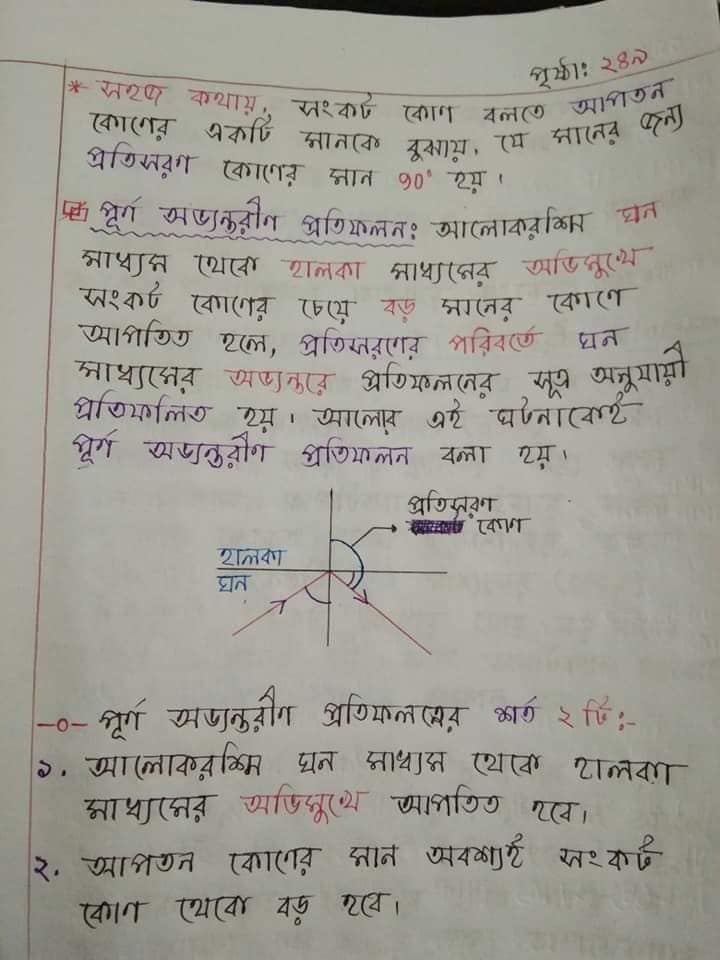 পৃষ্ঠা: ২৪৯
* সহজ কথায়, সংকট কোণ বলতে আপতন
কোণের একটি মানকে বুঝায়, যে মানের জন্য
প্রতিসরণ কোণের মান 90° হয়।
পূর্ণ অভ্যন্তরীণ প্রতিফলন: আলোকরশ্মি ঘন
মাধ্যম থেকে হালকা মাধ্যমের অভিমুখে
সংকট কোণের চেয়ে বড় মানের কোণে
আপতিত হলে, প্রতিসরণের পরিবর্তে ঘন
মাধ্যমের অভ্যন্তরে প্রতিফলনের সূত্র অনুযায়ী
প্রতিফলিত হয়। আলোর এই ঘটনাকেই
পূর্ণ অভ্যন্তরীণ প্রতিফলন বলা হয়।
প্রতিসরণ
কোণ
হালকা
ঘন
-০- পূর্ণ অভ্যন্তরীণ প্রতিফলনের শর্ত ২ টি:-
১. আলোকরশ্মি ঘন মাধ্যম থেকে হালকা
মাধ্যমের অভিমুখে আপতিত হবে।
২. আপতন কোণের মান অবশ্যই সংকট
কোণ থেকে বড় হবে।